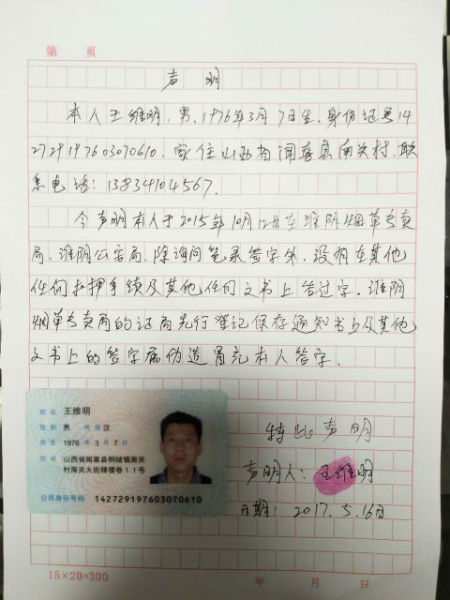 第 页
声明
本人王维明,男,1976年3月7日生,身份证号14
2729197603070610,家住山西省闻喜县南关村,联
系电话:13834104567.
今声明本人于2015年10月12日在淮阴烟草专卖
局、淮阴公安局,除询问笔录签字外,没有在其他
任何扣押手续及其他任何文书上签过字,淮阴
烟草专卖局的证据先行登记保存通知书以及其他
文书上的签字属伪造冒充本人签字.
特此声明
声明人:王维明
日期:2017.5.16日
姓名 王维明
性别 男 民族 汉
出生 1976 年 3 月 7 日
住址 山西省闻喜县桐城镇南关
村南关大街牌楼巷11号
公民身份号码 142729197603070610
15×20=300 年 月 日